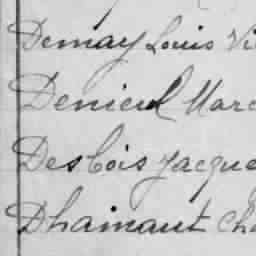 Demay Louis Vi
Denieul Marc
Desbois Jacque
Dhainaut Cha